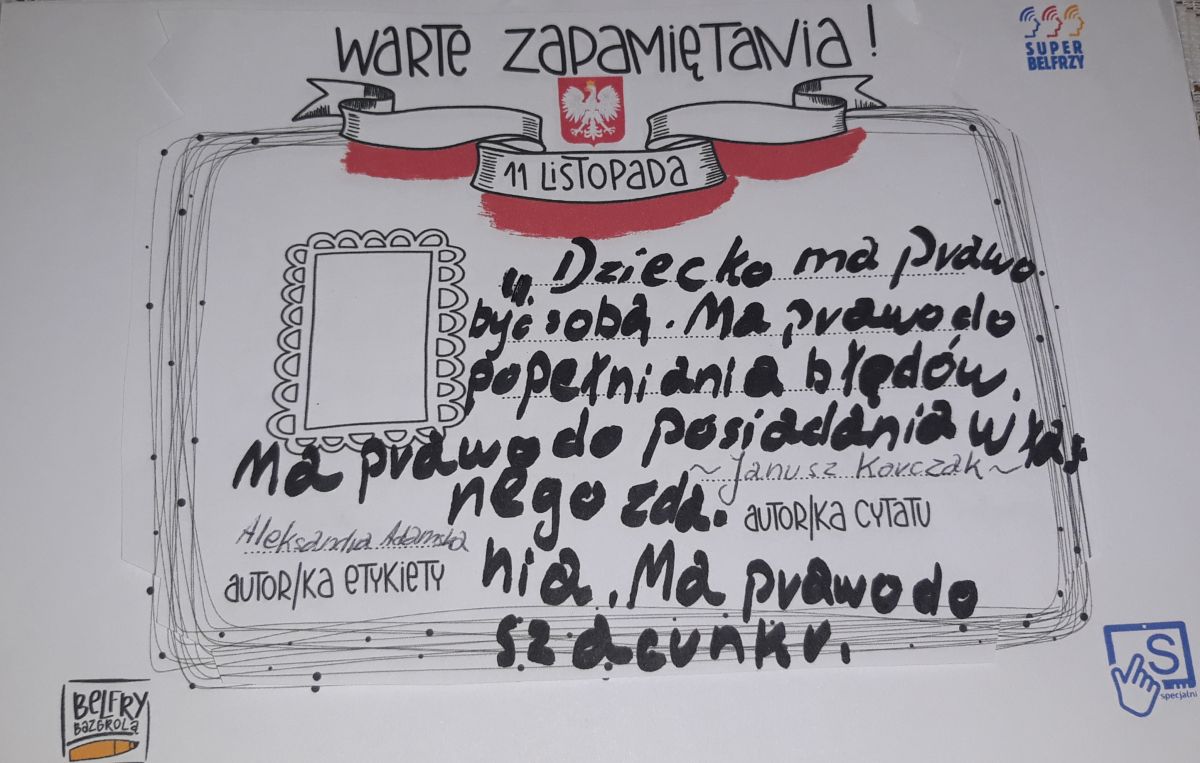 WARTE ZAPAMIĘTANIA!
SUPER
BELFRZY
11 LISTOPADA
„Dziecko ma prawo
być sobą. Ma prawo do
popełniania błędów.
Ma prawo do posiadania włas
~Janusz Korczak~
nego zda.
AUTOR/KA CYTATU
Aleksandra Adamska
AUTOR/KA ETYKIETY
nia. Ma prawo do
szacunku.
BELFRY
BAZGROLĄ
S
specjalni